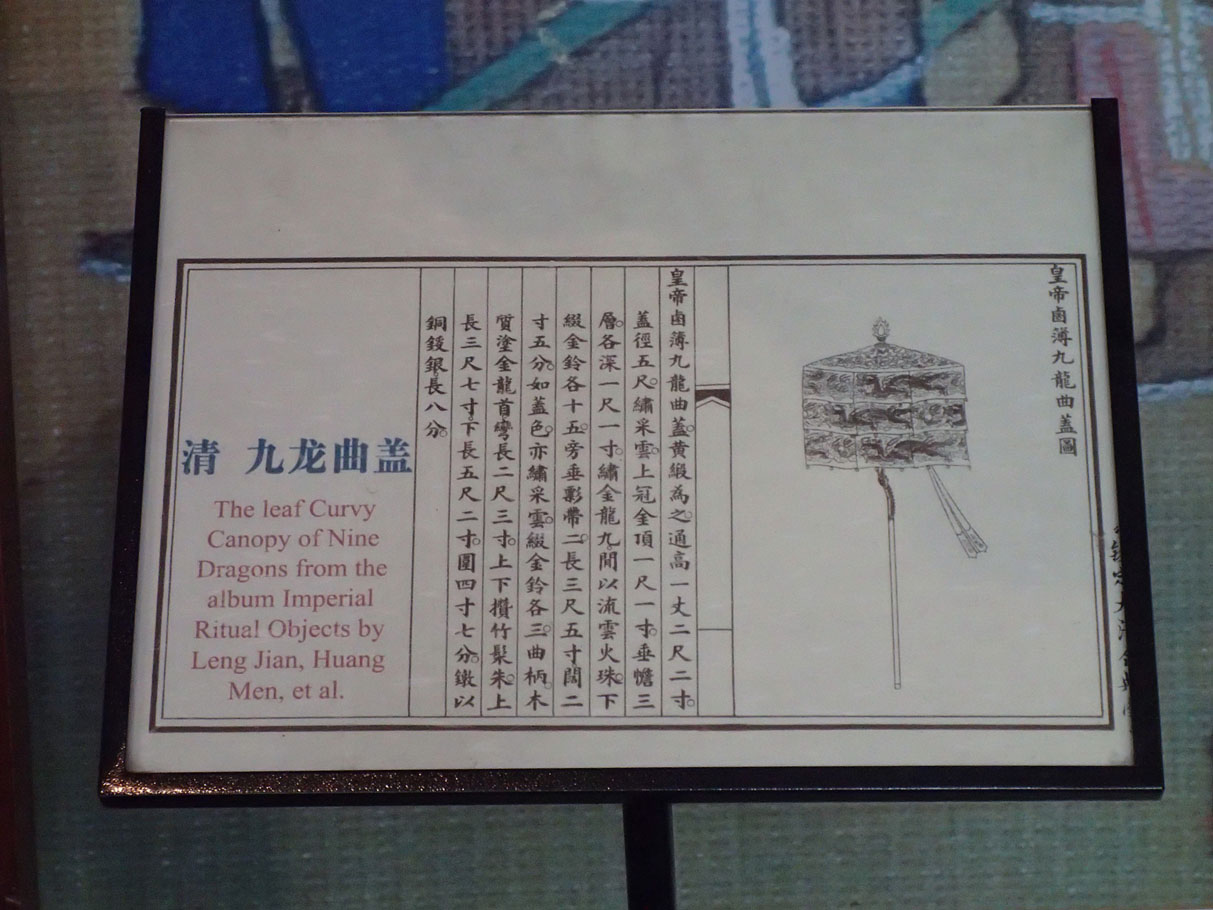 皇帝鹵簿九龍曲蓋圖
皇帝鹵簿九龍曲蓋黃緞為之通高一丈二尺二寸
蓋徑五尺繡采雲上冠金頂一尺一寸垂幨三
層各深一尺一寸繡金龍九閒以流雲火珠下
綴金鈴各十五旁垂影帶二長三尺五寸闊二
寸五分如蓋色亦繡采雲綴金鈴各三曲柄木
質塗金龍首彎長二尺三寸上下攢竹髹朱上
長三尺七寸下長五尺二寸圍四寸七分鐓以
銅鋄銀長八分
清 九龙曲盖
The leaf Curvy
Canopy of Nine
Dragons from the
album Imperial
Ritual Objects by
Leng Jian, Huang
Men, et al.